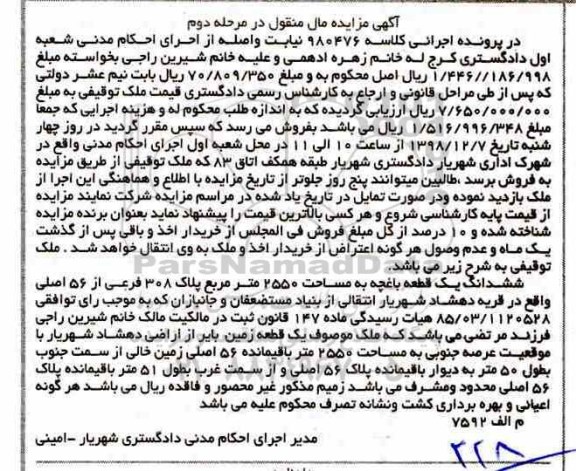 آگهی مزایده مال منقول در مرحله دوم
در پرونده اجرائی کلاسه ۹۸۰۴۷۶ نیابت واصله از اجرای احکام مدنی شعبه
اول دادگستری کرج له خانم زهره ادهمی و علیه خانم شیرین راجی بخواسته مبلغ
۱/۴۴۶//۱۸۶/۹۹۸ ریال اصل محکوم به و مبلغ ۷۰/۸۰۹/۳۵۰ ریال بابت نیم عشر دولتی
که پس از طی مراحل قانونی و ارجاع به کارشناس رسمی دادگستری قیمت ملک توقیفی به مبلغ
۷/۶۵۰/۰۰۰/۰۰۰ ریال ارزیابی گردیده که به اندازه طلب محکوم له و هزینه اجرایی که جمعا
مبلغ ۱/۵۱۶/۹۹۶/۳۴۸ ریال می باشد بفروش می رسد که سپس مقرر گردید در روز چهار
شنبه تاریخ ۱۳۹۸/۱۲/۷ از ساعت ۱۰ الی ۱۱ در محل شعبه اول اجرای احکام مدنی واقع در
شهرک اداری شهریار دادگستری شهریار طبقه همکف اتاق ۸۳ که ملک توقیفی از طریق مزایده
به فروش برسد ،طالبین میتوانند پنج روز جلوتر از تاریخ مزایده با اطلاع و هماهنگی این اجرا از
ملک بازدید نموده ودر صورت تمایل در تاریخ یاد شده در مراسم مزایده شرکت نمایند مزایده
از قیمت پایه کارشناسی شروع و هر کسی بالاترین قیمت را پیشنهاد نماید بعنوان برنده مزایده
شناخته شده و ۱۰ درصد از کل مبلغ فروش فی المجلس از خریدار اخذ و باقی پس از گذشت
یک ماه و عدم وصول هر گونه اعتراض از خریدار اخذ و ملک به وی انتقال خواهد شد . ملک
توقیفی به شرح زیر می باشد.
ParsNamadData
ششدانگ یک قطعه باغچه به مساحت ۲۵۵۰ متر مربع پلاک ۳۰۸ فرعی از ۵۶ اصلی
واقع در قریه دهشاد شهریار انتقالی از بنیاد مستضعفان و جانبازان که به موجب رای توافقی
۸۵/۰۳/۱۱۲۰۵۲۸ هیات رسیدگی ماده ۱۴۷ قانون ثبت در مالکیت مالک خانم شیرین راجی
فرزند مر تضی می باشد که ملک موصوف یک قطعه زمین بایر از اراضی دهشاد شهریار با
موقعیت عرصه جنوبی به مساحت ۲۵۵۰ متر باقیمانده ۵۶ اصلی زمین خالی از سمت جنوب
بطول ۵۰ متر به دیوار باقیمانده پلاک ۵۶ اصلی و از سمت غرب بطول ۵۱ متر باقیمانده پلاک
۵۶ اصلی محدود ومشرف می باشد زمیم مذکور غیر محصور و فاقده ریال می باشد هر گونه
اعیانی و بهره برداری کشت ونشانه تصرف محکوم علیه می باشد
م الف ۷۵۹۲
مدیر اجرای احکام مدنی دادگستری شهریار -امینی
۲۲۸